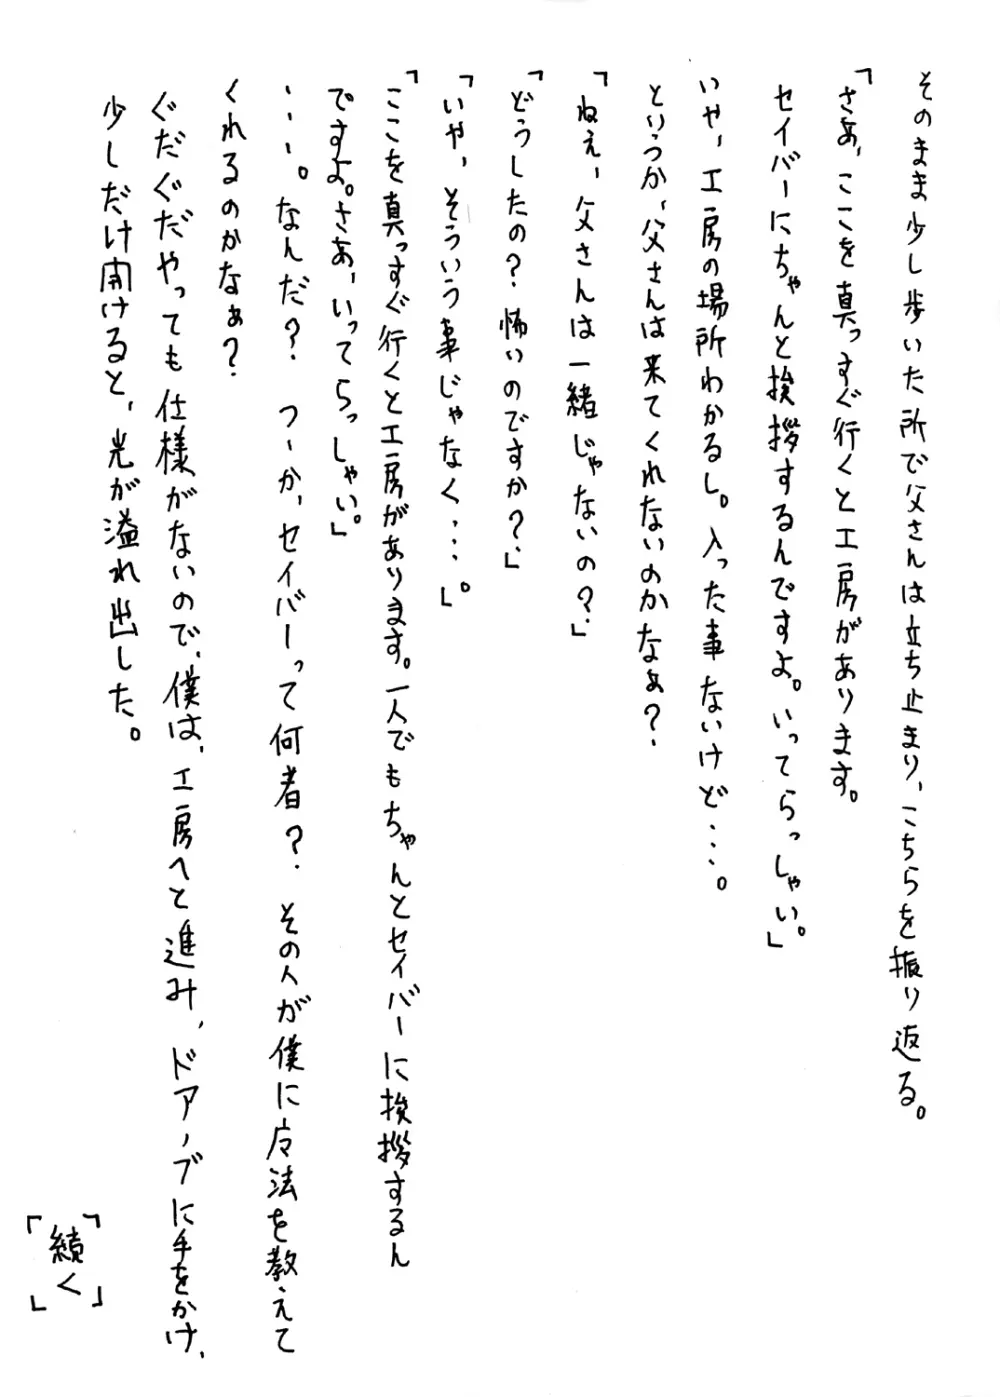 そのまま少し歩いた所で父さんは立ち止まり、こちらを振り返る。
「さあ、ここを真っすぐ行くと工房があります。
セイバーにちゃんと挨拶するんですよ。いってらっしゃい。」
いや、工房の場所わかるし。入った事ないけど・・・・。
というか、父さんは来てくれないのかなぁ?
「ねぇ、父さんは一緒じゃないの?」
「どうしたの? 怖いのですか?」
「いや、そういう事じゃなく・・・・。」
「ここを真っすぐ行くと工房があります。一人でもちゃんとセイバーに挨拶するん
ですよ。さあ、いってらっしゃい。」
・・・・。なんだ? つーか、セイバーって何者? その人が僕に魔法を教えて
くれるのかなぁ?
ぐだぐだやっても仕様がないので、僕は、工房へと進み、ドアノブに手をかけ、
少しだけ開けると、光が溢れ出した。
「続く」